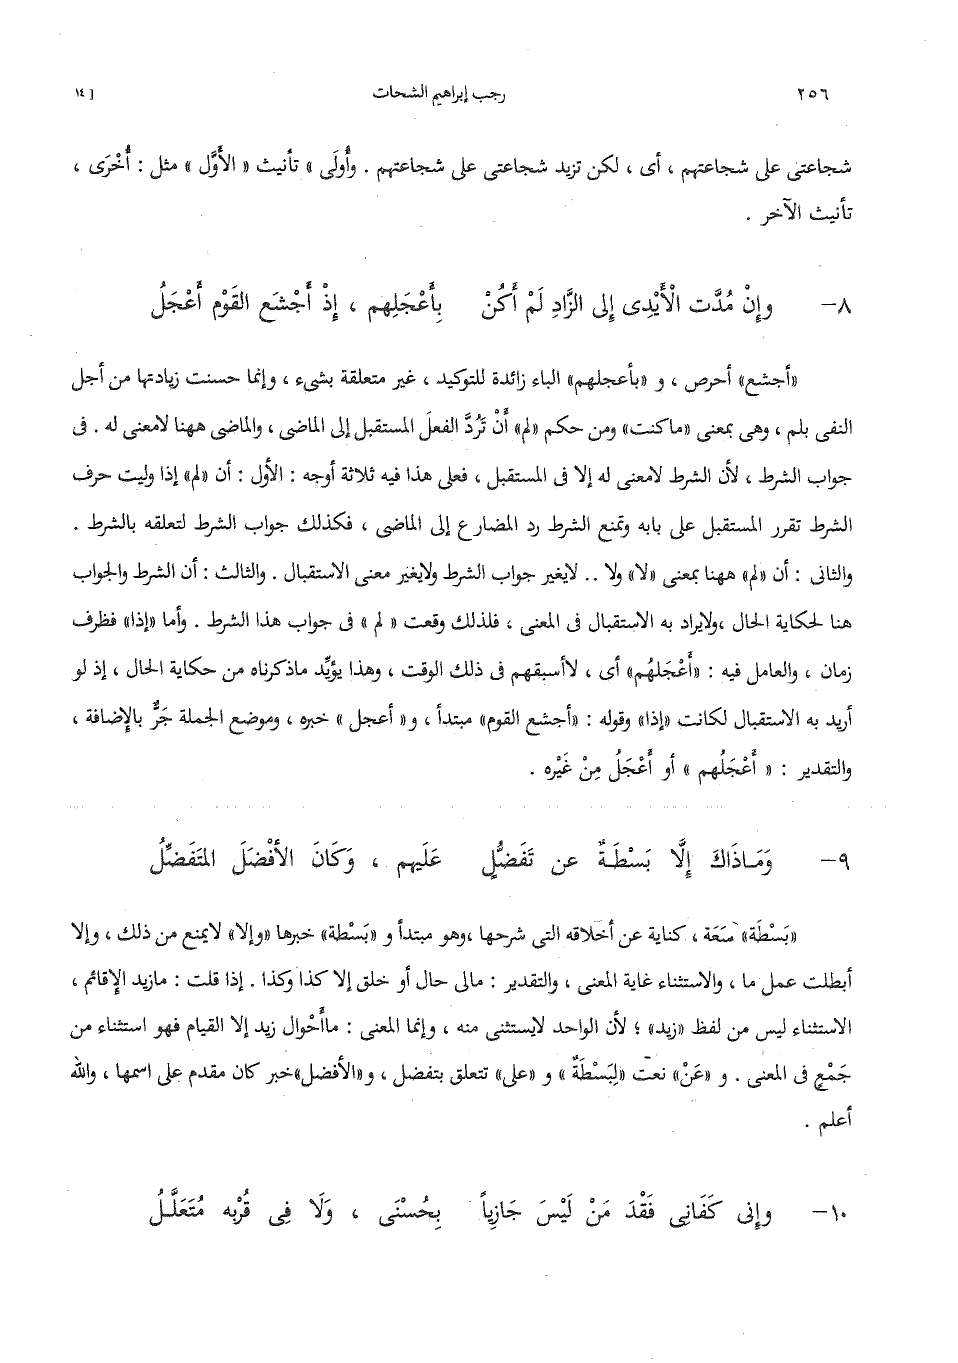 ٢٥٦ رجب إبراهيم الشحات [ ١٤
شجاعتى على شجاعتهم ، أى ، لكن تزيد شجاعتى على شجاعتهم . وأُولَى » تأنيث « الأَوَّل » مثل : أُخْرَى ،
تأنيث الآخر .
٨– وإنْ مُدَّت الْأَيْدِى إلى الزَّادِ لَمْ أَكُنْ بِأَعْجَلِهم ، إذْ أَجْشَع القَوْم أَعْجَلُ
«أجشع» أحرص ، و «بأعجلهم» الباء زائدة للتوكيد ، غير متعلقة بشىء ، وإنما حسنت زيادتها من أجل
النفى بلم ، وهى بمعنى «ماكنت» ومن حكم «لم» أَنْ تَرُدَّ الفعلَ المستقبل إلى الماضى ، والماضى ههنا لامعنى له . فى
جواب الشرط ، لأن الشرط لامعنى له إلا فى المستقبل ، فعلى هذا فيه ثلاثة أوجه : الأول : أن «لم» إذا وليت حرف
الشرط تقرر المستقبل على بابه وتمنع الشرط رد المضارع إلى الماضى ، فكذلك جواب الشرط لتعلقه بالشرط .
والثانى : أن «لم» ههنا بمعنى «لا» ولا .. لايغير جواب الشرط ولايغير معنى الاستقبال . والثالث : أن الشرط والجواب
هنا لحكاية الحال ،ولايراد به الاستقبال فى المعنى ، فلذلك وقعت « لم » فى جواب هذا الشرط . وأما «إذا» فظرف
زمان ، والعامل فيه : «أَعْجَلهُم» أى ، لاأسبقهم فى ذلك الوقت ، وهذا يؤيِّد ماذكرناه من حكاية الحال ، إذ لو
أريد به الاستقبال لكانت «إذا» وقوله : «أجشع القوم» مبتدأ ، و« أعجل » خبره ، وموضع الجملة جَرٌّ بالإضافة ،
والتقدير : « أَعْجَلُهم » أو أَعْجَلُ مِنْ غَيْره .
٩– وَمَـاذَاكَ إلَّا بَسْطَـةٌ عن تَفَضُّلٍ عَلَيهم ، وَكَانَ الأَفْضَلَ المتَفَضِّلُ
«بَسْطَة» سَعَة ، كناية عن أخلاقه التى شرحها ،وهو مبتدأ و «بَسْطة» خبرها «وإلا» لايمنع من ذلك ، وإلا
أبطلت عمل ما ، والاستثناء غاية المعنى ، والتقدير : مالى حال أو خلق إلا كذا وكذا . إذا قلت : مازيد الإقائم ،
الاستثناء ليس من لفظ «زيد» ؛ لأن الواحد لايستثنى منه ، وإنما المعنى : ماأَحْوال زيد إلا القيام فهو استثناء من
جَمْعٍ فى المعنى . و «عَنْ» نعت «لِبَسْطَةٌ » و «على» تتعلق بتفضل ، و«الأفضل»خبر كان مقدم على اسمها ، والله
أعلم .
١٠– وإنى كَفَانِى فَقْدَ مَنْ لَيْسَ جَازِياً بِحُسْنَى ، وَلَا فِى قُرْبه مُتَعَلَّـلُ